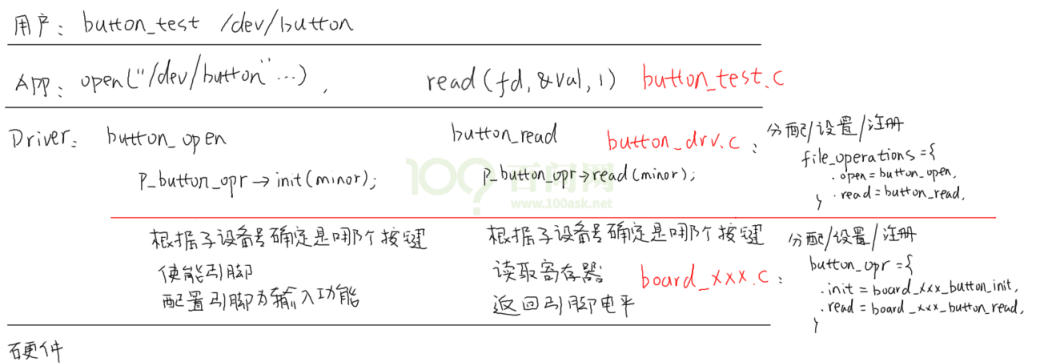 用户: button_test /dev/button
App: open("/dev/button"...), read(fd,&val,1) button_test.c
Driver: button_open button_read button_drv.c:
p_button_opr→init(minor); p_button_opr→read(minor);
分配/设置/注册
file_operations={
.open=button_open,
.read=button_read,
}
百问网
www.100ask.net
根据子设备号确定是哪个按键
使能引脚
配置引脚为输入功能
根据子设备号确定是哪个按键
读取寄存器
返回引脚电平
board_xxx.c:
分配/设置/注册
button_opr={
.init=board_xxx_button_init,
.read=board_xxx_button_read,
}
硬件